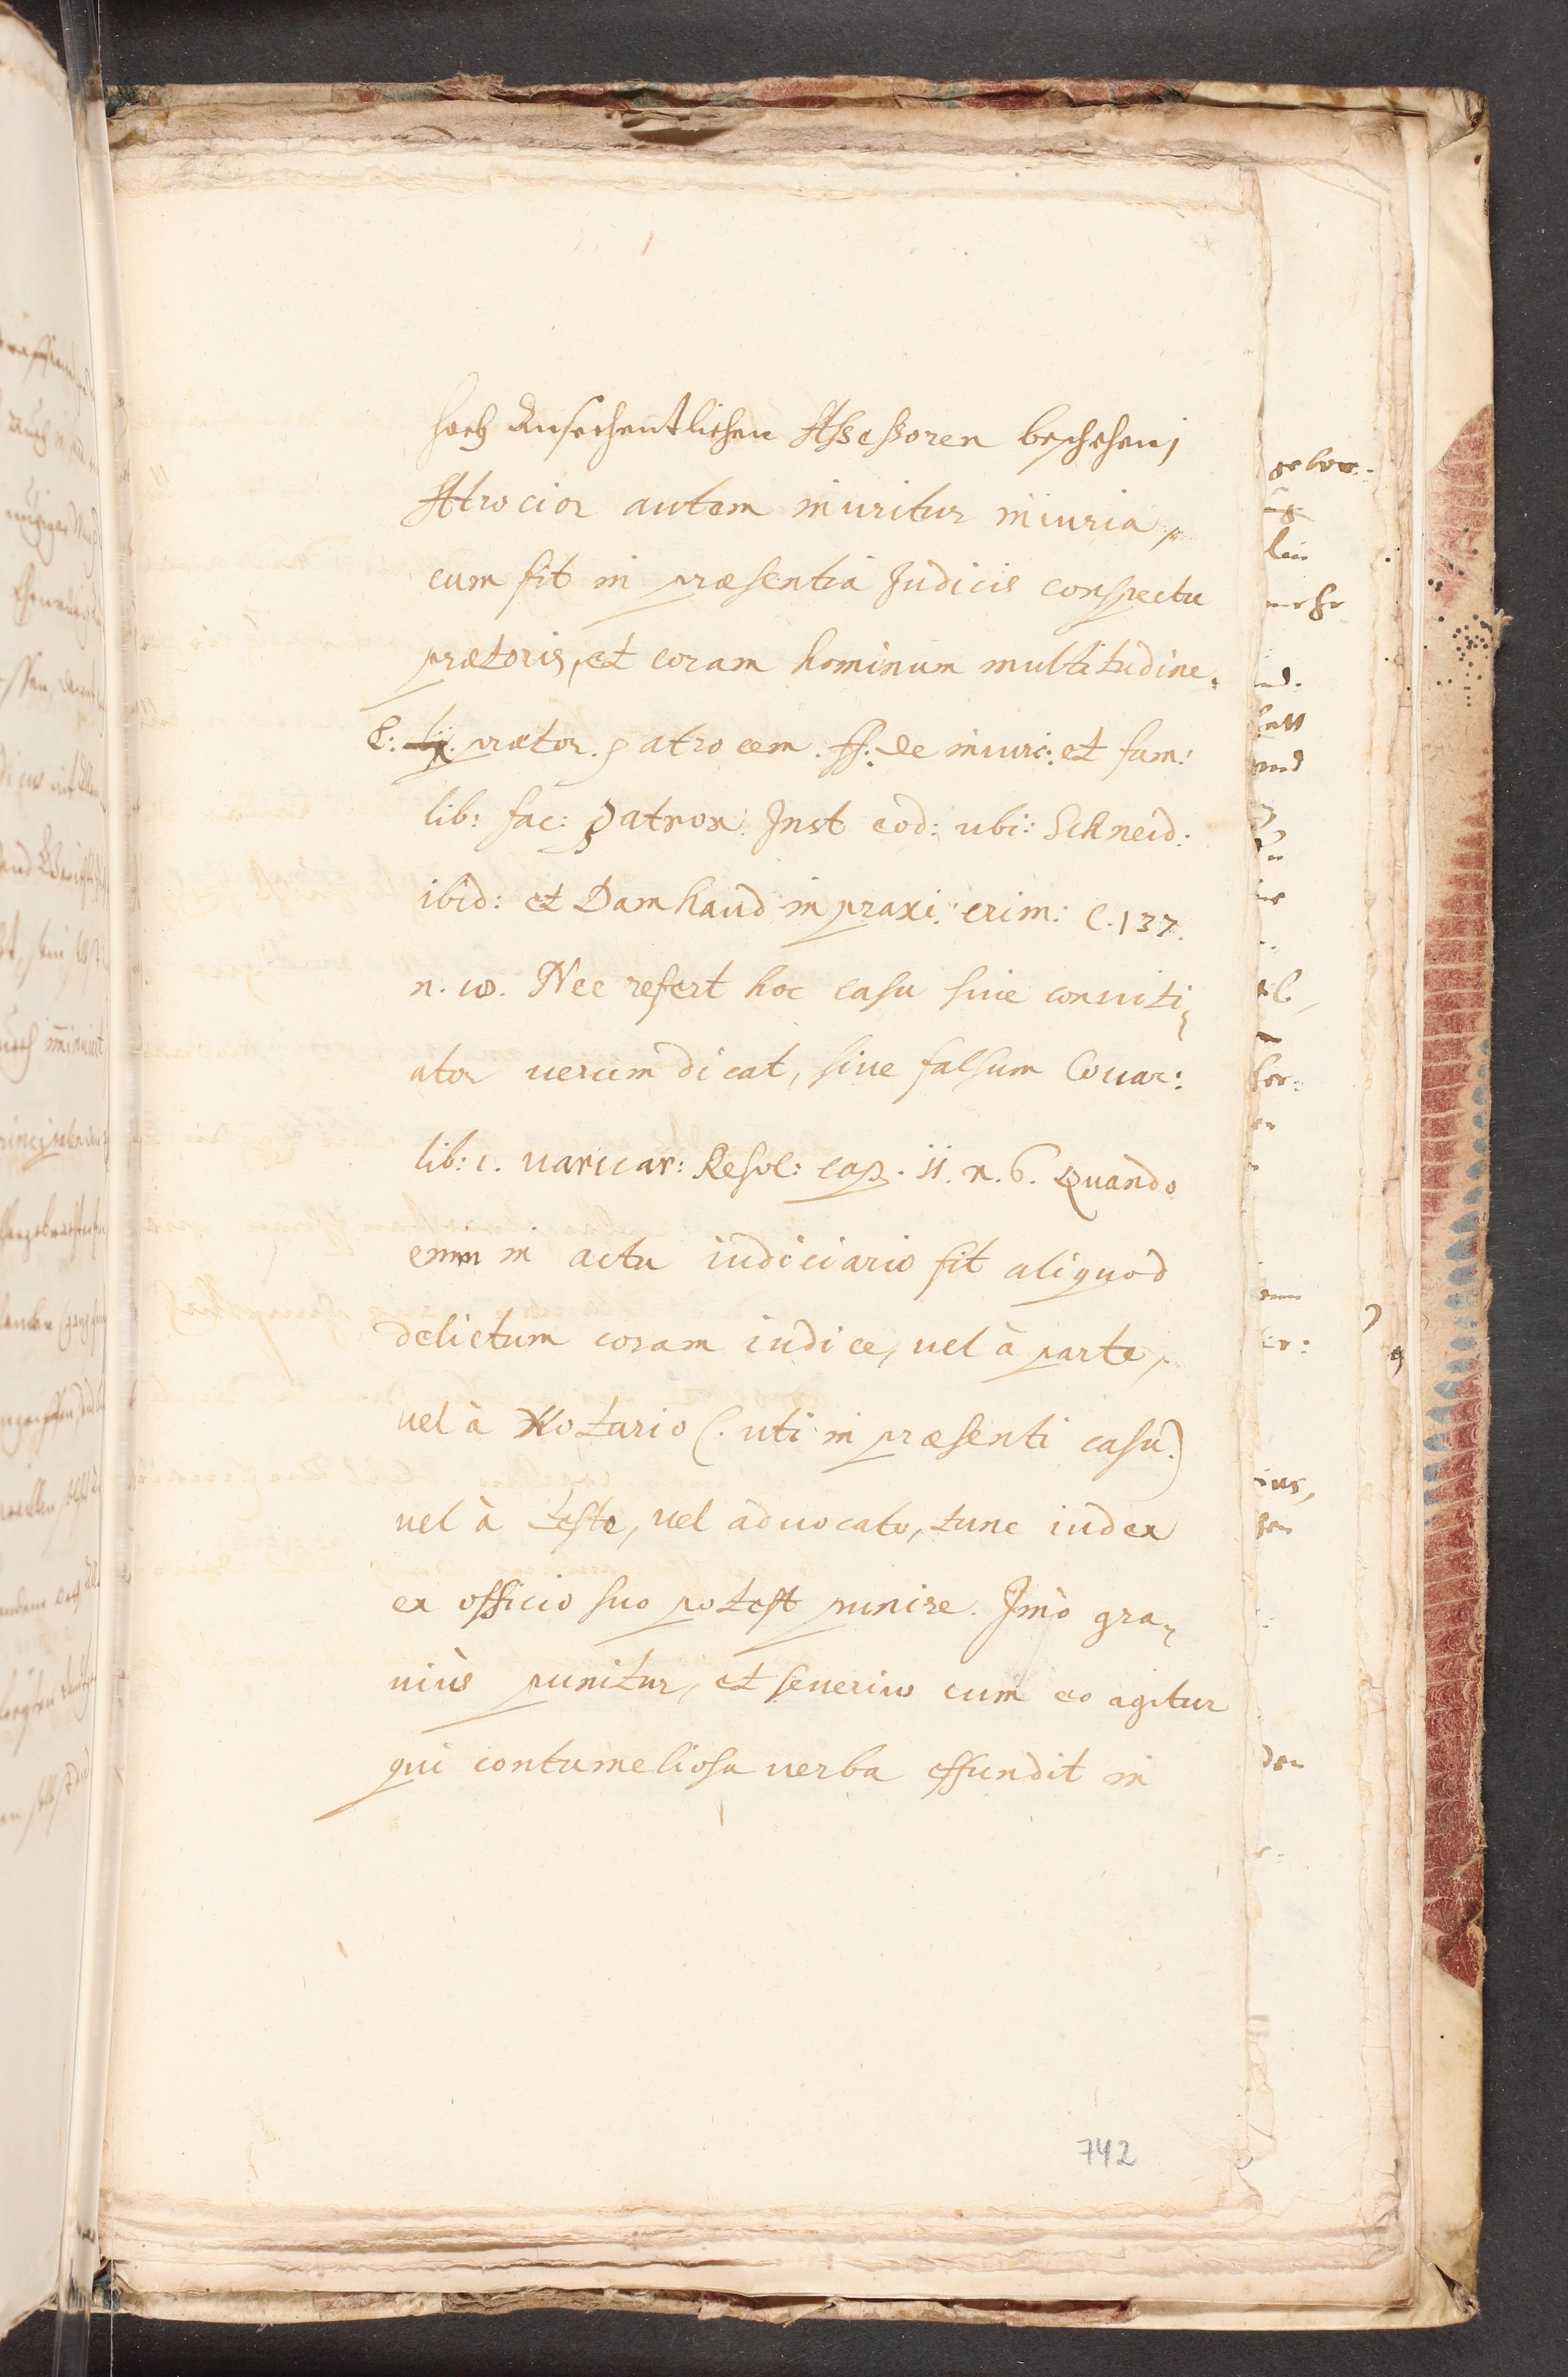 hoch Ansechentlichen Assessoren beschehen,
Atrocior autem inuritur iniuria,
cum fit in præsentia Judicis conspectu
prætoris, et coram hominum multitudine.
l: prætor. § atrocem. ff: de iniuri: et fam:
lib: fac: § atrox. Inst eod: ubi: Schneid:
ibid: et Damhaud in praxi: crim: C. 137.
n. 10. Nec refert hoc casu siue conuiti-
ator uerum dicat, siue falsum Couar:
lib: 1. uariar: Resol: cap. 11. n. 6. Quando
enim in actu iudiciario fit aliquod
delictum coram iudice, uel à parte,
uel à Notario (. uti in præsenti casu.)
uel à teste, uel aduocato, tunc iudex
ex officio suo potest punire. Imò gra-
uius punitur, et seuerius cum eo agitur
qui contumeliosa uerba effundit in
742